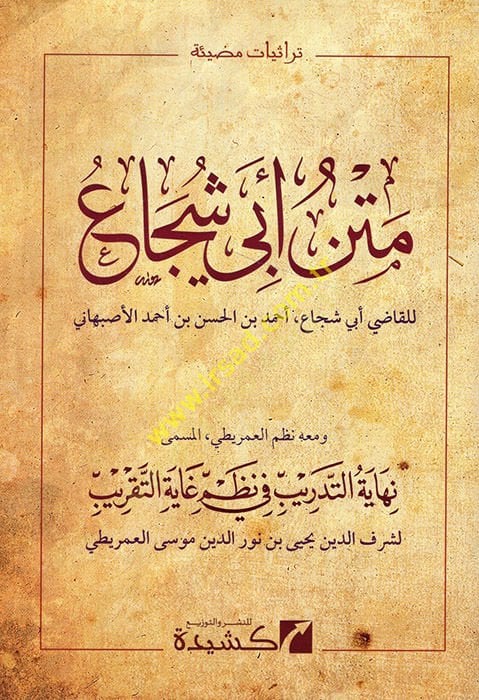 تراثيات مضيئة
مَتْنُ أَبِي شُجَاعُ
للقاضي أبي شجاع، أحمد بن الحسن بن أحمد الأصبهاني
ومعه نظم العمريطي، المسمى
نِهَايَةُ التَّدْرِيبِ فِي نَظْمِ غَايَةِ التَّقْرِيبِ
لشرف الدين يحيى بن نور الدين موسى العمريطي
للنشر والتوزيع
كشيدة
www.irsad.com.tr